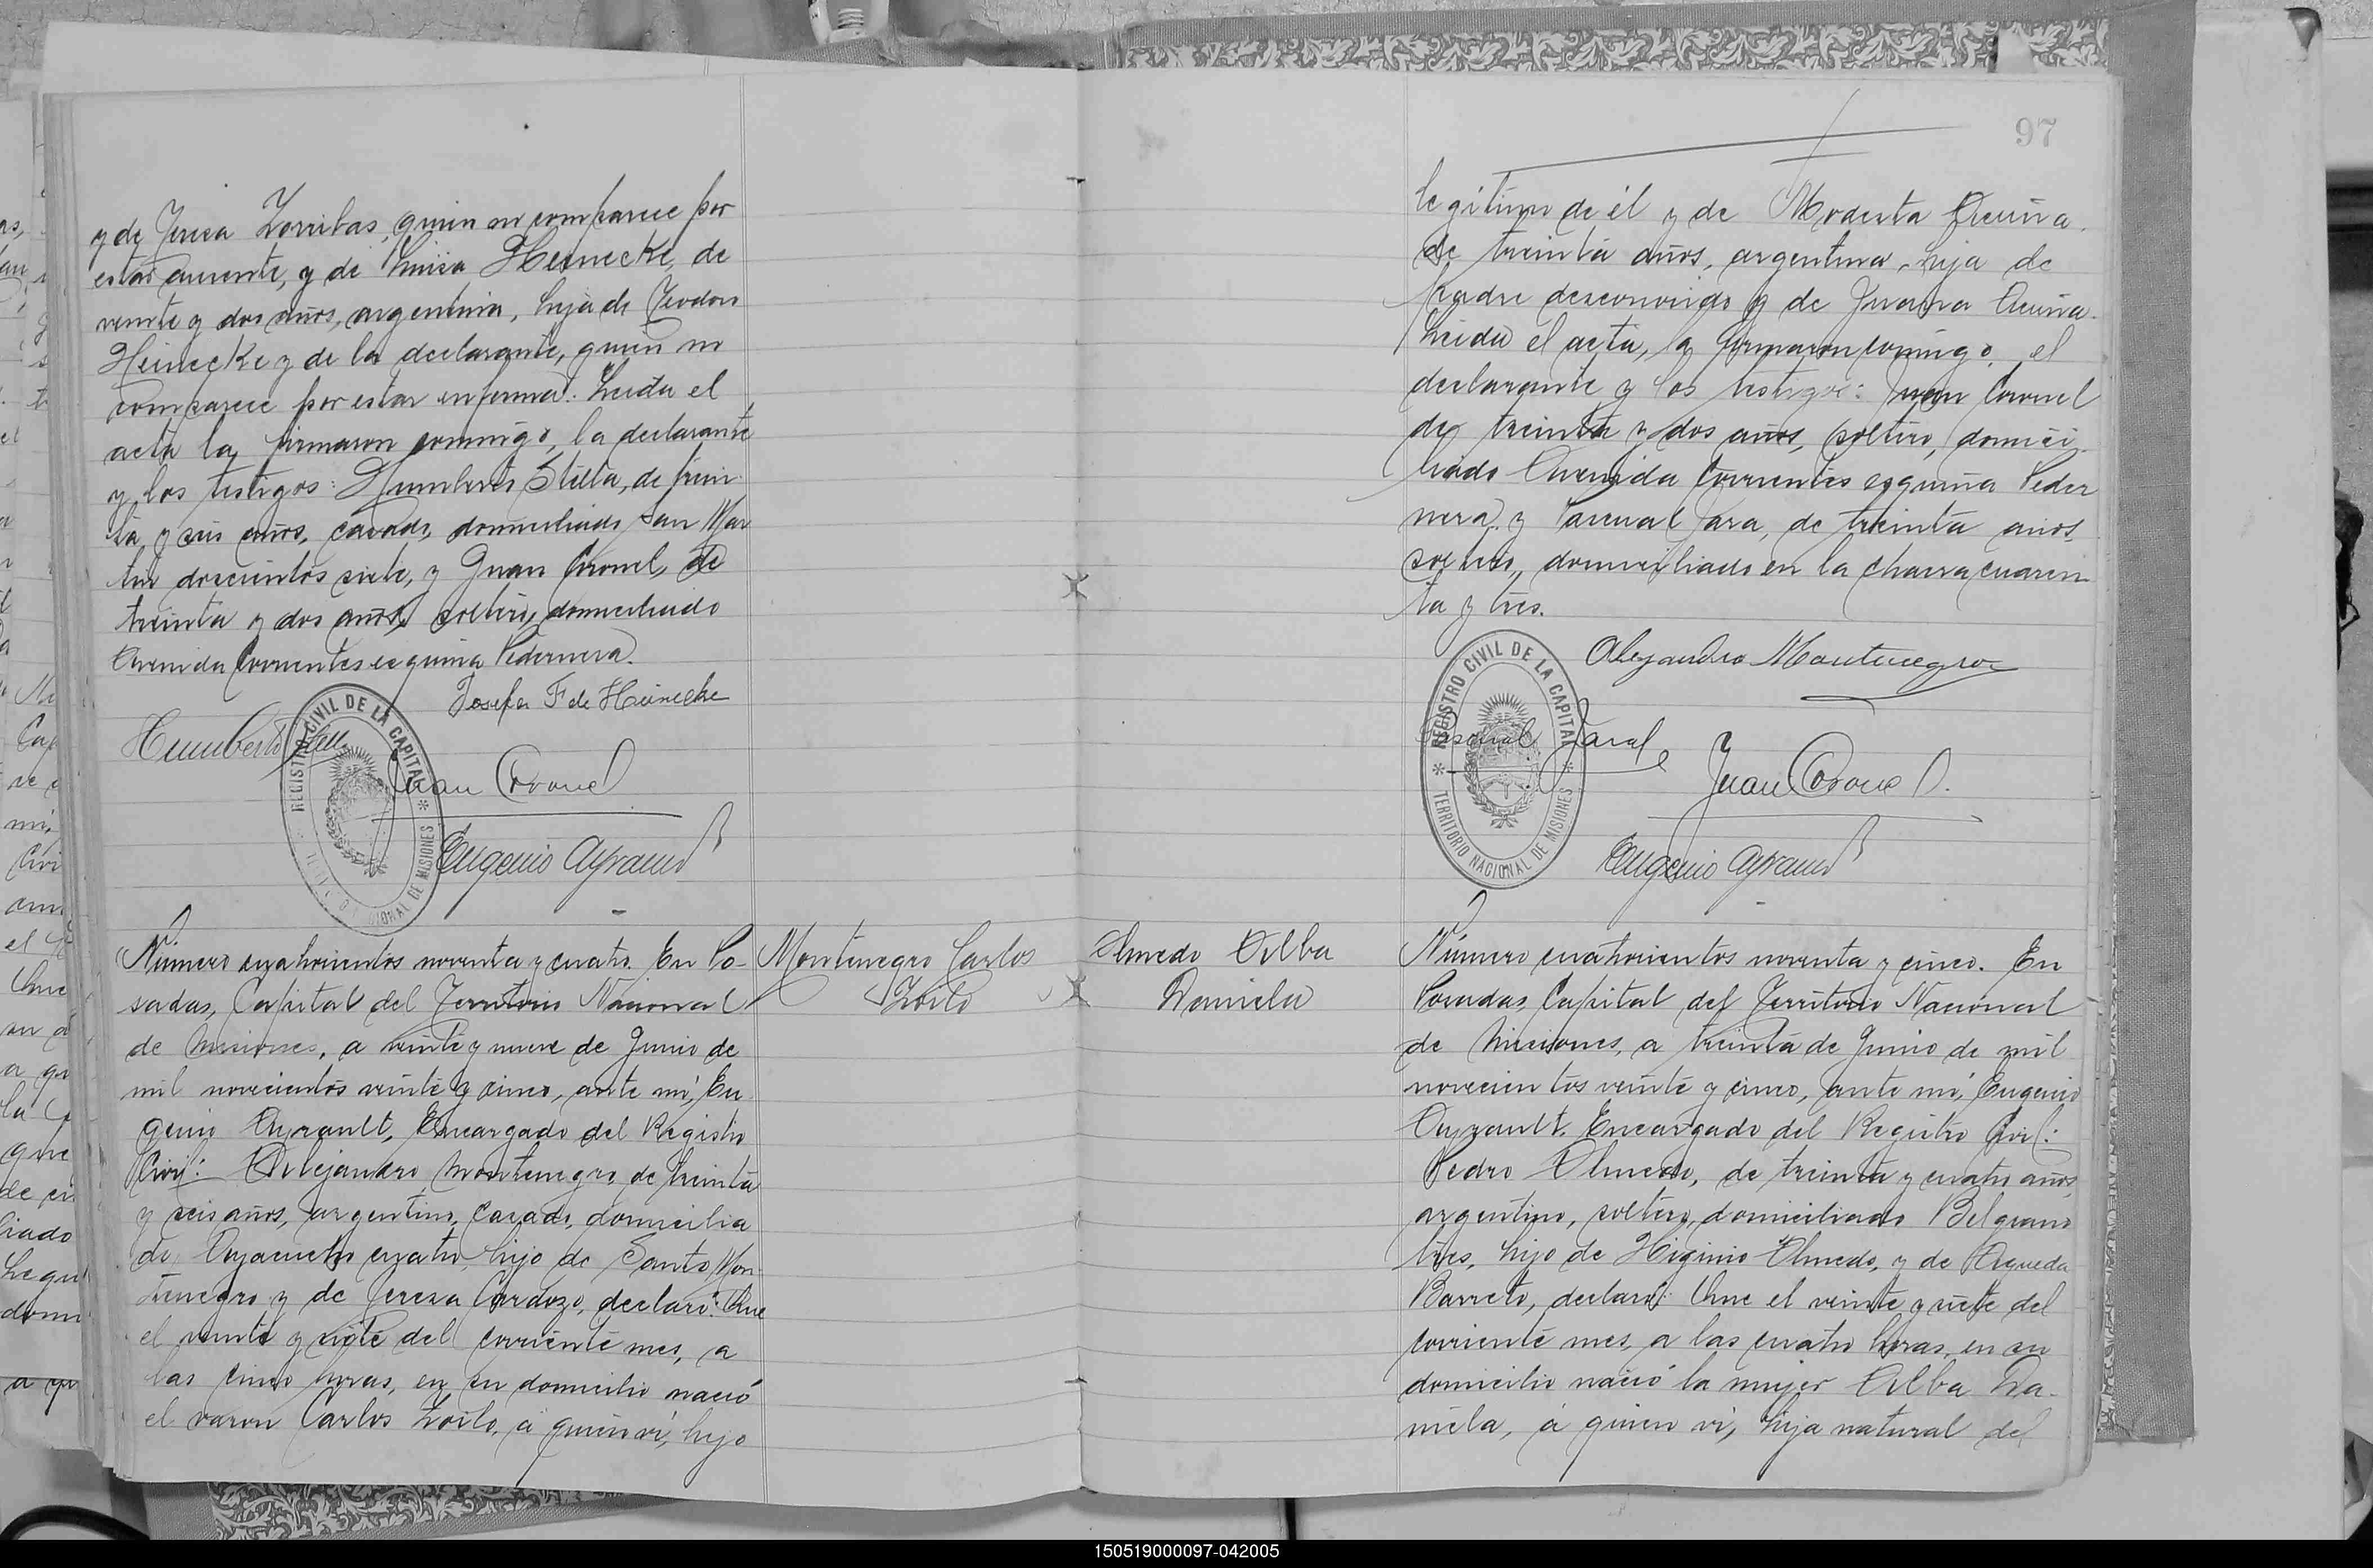 y de Teresa Zorrilas, quien no comparece por
estar ausente, y de Luisa Heinecke, de
veinte y dos años, argentina, hija de Teodoro
Heinecke y de la declarante, quien no
comparece por estar enferma. Leida el
acta la firmaron conmigo, la declarante
y los testigos: Humberto de trein
ta y seis años, casado, domiciliado San Mar
tin doscientos siete, y Juan Coronel, de
treinta y dos años, soltero, domiciliado
Avenida Corrientes esquina Pedernera.
Josefa F de Heinecke
Humberto
Juan Coronel
Eugenio Ayrault
REGISTRO CIVIL DE LA CAPITAL
NACIONAL DE MISIONES
Montenegro Carlos
Zoilo
Número cuatrocientos noventa y cuatro. En Po-
sadas, Capital del Territorio Nacional
de Misiones, a veinte y nueve de Junio de
mil novecientos veinte y cinco, ante mí, Eu
genio Ayrault, Encargado del Registro
Civil: Alejandro Montenegro, de treinta
y seis años, argentino, casado, domicilia
do Ayacucho cuatro, hijo de Santo Mon-
tenegro y de Teresa Cardozo, declaró: Que
el veinte y siete del corriente mes, a
las cinco horas, en su domicilio nació
el varon Carlos Zoilo, á quien ví, hijo
97
legítimo de él y de Modesta Acuña,
de treinta años, argentina, hija de
padre desconocido y de Juana Acuña.
Leida el acta, la firmaron conmigo, el
declarante y los testigos: Juan Coronel
de treinta y dos años, soltero, domici
liado Avenida Corrientes esquina Peder
nera, y Pascual Jara, de treinta años,
soltero, domiciliado en la chacra cuaren
ta y tres.
Alejandro Montenegro
Pascual Jara
Juan Coronel
Eugenio Ayrault
REGISTRO CIVIL DE LA CAPITAL
TERRITORIO NACIONAL DE MISIONES
Olmedo Alba
Daniela
Número cuatrocientos noventa y cinco. En
Posadas, Capital del Territorio Nacional
de Misiones, a treinta de Junio de mil
novecientos veinte y cinco, ante mí, Eugenio
Ayrault, Encargado del Registro Civil:
Pedro Olmedo, de treinta y cuatro años,
argentino, soltero, domiciliado Belgrano
tres, hijo de Higinio Olmedo, y de Agueda
Barreto, declaró: Que el veinte y siete del
corriente mes, a las cuatro horas, en su
domicilio nació la mujer Alba Da-
niela, á quien ví, hija natural del
150519000097-042005